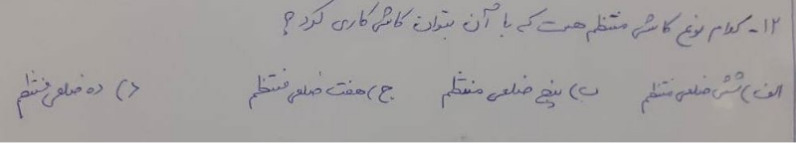 ۱۲- کدام نوع کاشی منتظم هست که با آن بتوان کاشی کاری کرد؟
الف) شش ضلعی منتظم ب) پنج ضلعی منتظم ج) هفت ضلعی منتظم د) ده ضلعی منتظم